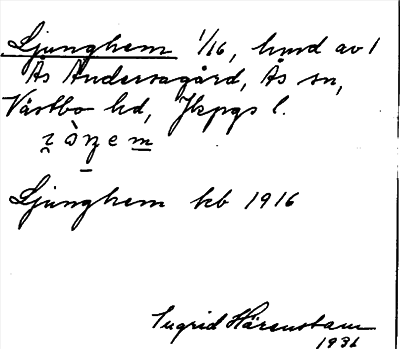 Ljunghem 1/16, hmd av 1
Ås Andersagård, Ås sn,
Västbo hd, Jkpgs l.
Ljunghem kb 1916
Ingrid Härenstam
1936